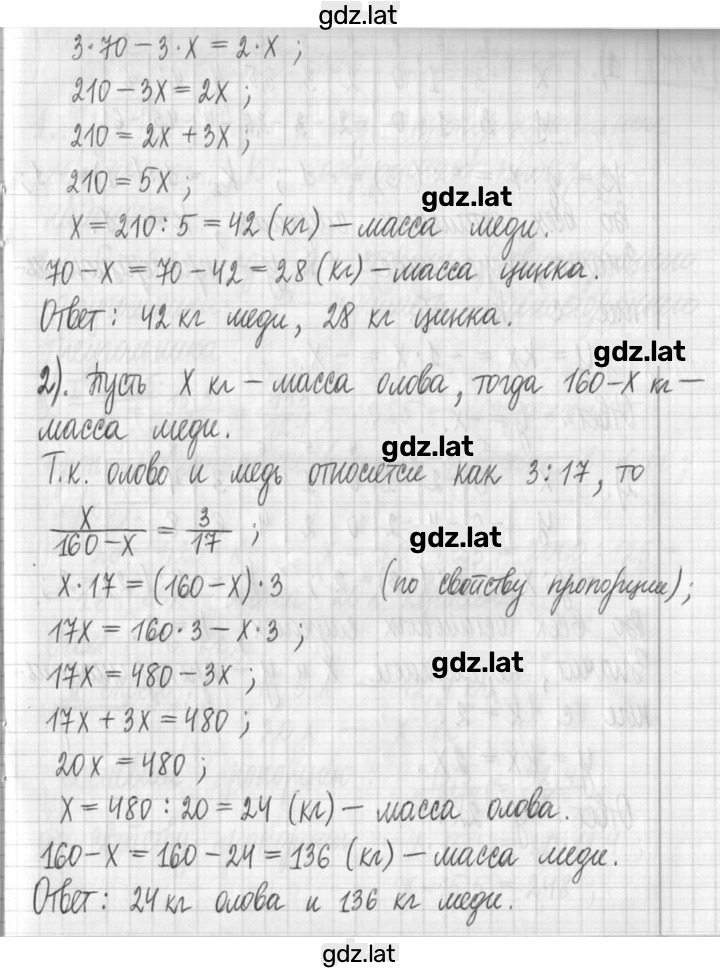 gdz.lat
3·70-3·x=2·x;
210-3x=2x;
210=2x+3x;
210=5x;
gdz.lat
x=210:5=42(кг)-масса меди.
70-x=70-42=28(кг)-масса цинка.
Ответ: 42 кг меди, 28 кг цинка.
gdz.lat
2). Пусть x кг - масса олова, тогда 160-x кг -
масса меди.
gdz.lat
Т.к. олово и медь относятся как 3:17, то
x/(160-x) = 3/17;
gdz.lat
x·17=(160-x)·3 (по свойству пропорции);
17x=160·3-x·3;
gdz.lat
17x=480-3x;
17x+3x=480;
20x=480;
x=480:20=24 (кг) - масса олова.
160-x=160-24=136 (кг) - масса меди.
Ответ: 24 кг олова и 136 кг меди.
gdz.lat